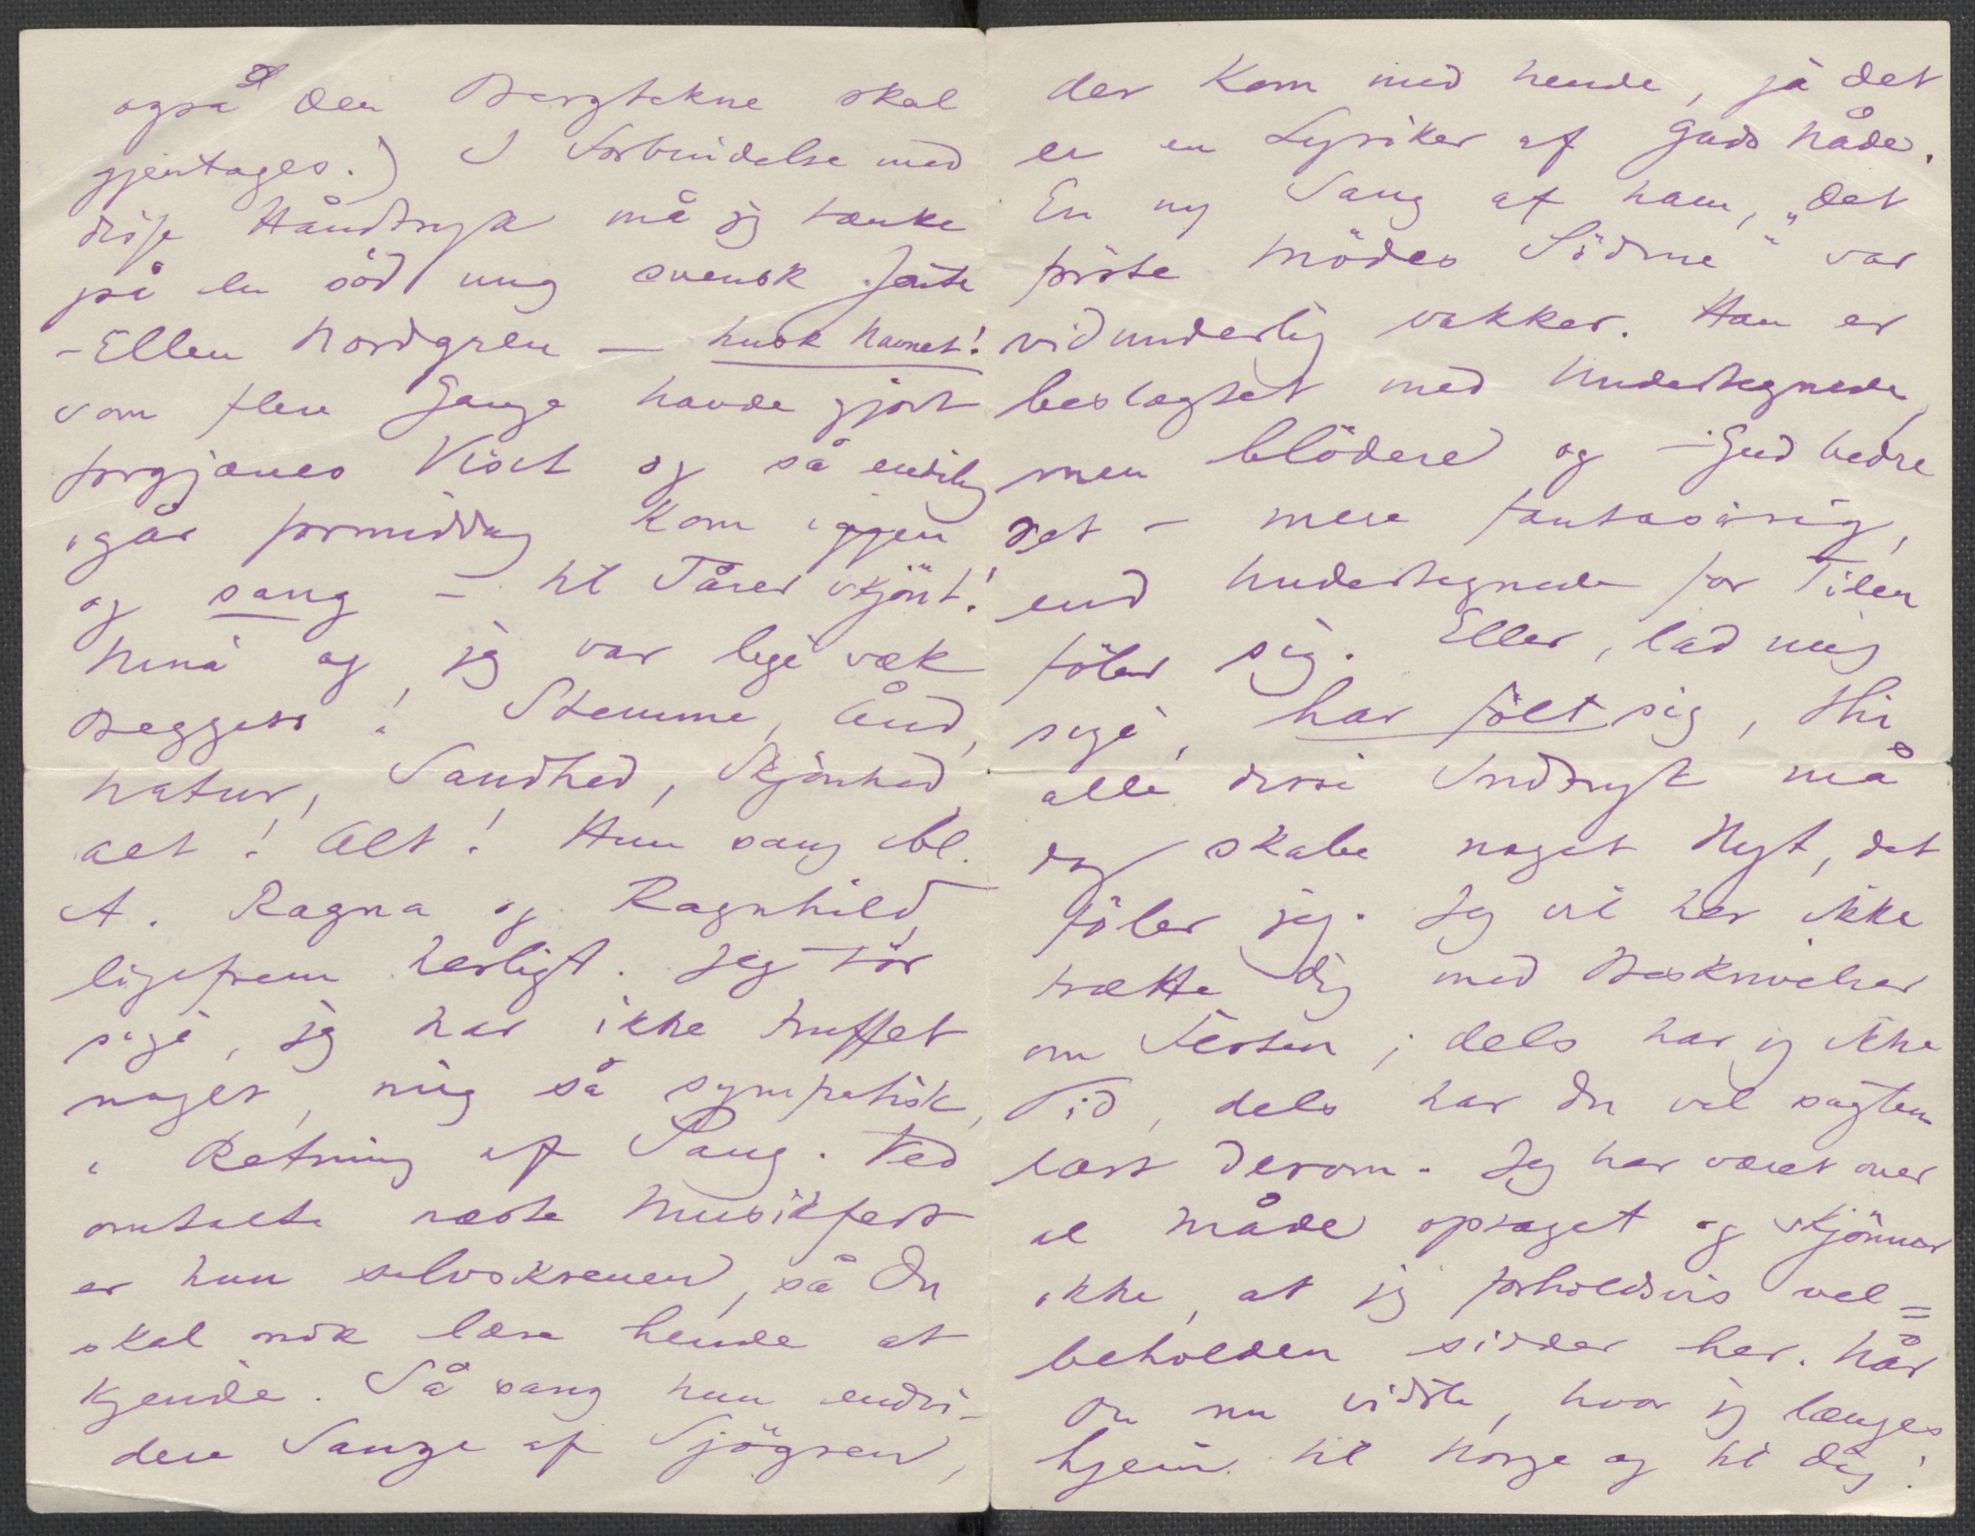 også den Bergtekne skal
gjentages.) I Forbindelse med
disse Håndtryk må jeg tænke
på en sød ung svensk Jente
– Ellen Nordgren – husk Navnet!
som flere Gange havde gjort
forgjæves Visit og så endelig
igår formiddag kom igjen
og sang – til Tårer skjönt!
Nina og jeg var lige væk
Begge to! Stemme, Ånd,
Natur, Sandhed, Skjönhed,
alt! Alt! Hun sang bl.
A. Ragna og Ragnhild,
ligefrem herligt. Jeg tör
sige, jeg har ikke truffet
noget, mig så sympatisk,
i Retning af Sang. Ved
omtalte næste Musikfest
er hun selvskreven, så Du
skal nok lære hende at
kjende. Så sang hun endvi-
dere Sange af Sjögren,
der kom med hende, ja det
er en Lyriker af Guds Nåde.
En ny Sang af ham, „Det
förste Mödes Södme“ var
vidunderlig vakker. Han er
beslægtet med Undertegnede,
men blödere og – Gud bedre
det – mere fantasirig,
end Undertegnede for Tiden
föler sig. Eller, lad mig
sige, har fölt sig, thi
alle disse Indtryk må
dog skabe noget Nyt, det
föler jeg. Jeg vil her ikke
trætte Dig med Beskrivelser
om Festen; dels har jeg ikke
Tid, dels har Du vel sagtens
læst derom. Jeg har været over
al Måde optaget og skjönner
ikke, at jeg forholdsvis vel=
beholden sidder her. Når
Du nu vidste, hvor jeg længes
hjem til Norge og til Dig!